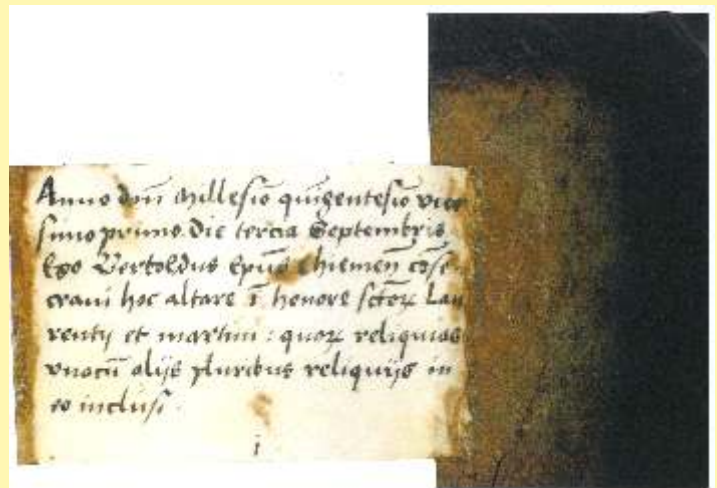 Anno dñi Millesiõ quĩgentesiõ vice
simo primo. Die tercia Septembris
Ego Bertoldus Epũs Chiemeñ cõse
craui hoc altare ĩ honore sctoꝝ Lau
rentij et martini : quoꝝ reliquias
vnacũ alijs pluribus reliquijs in
eo inclusi .